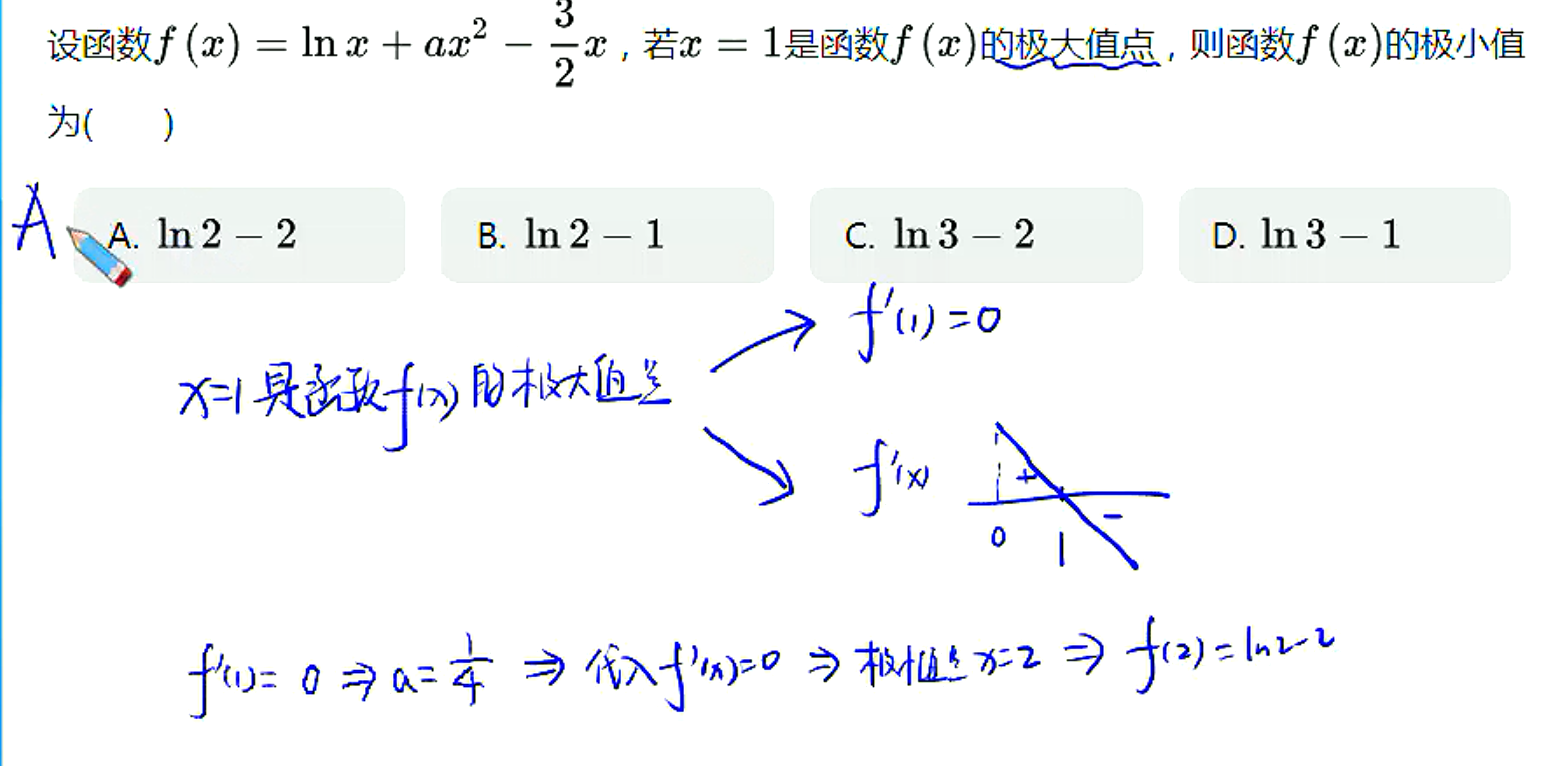 设函数f (x) = ln x + ax² − 3/2 x，若x = 1是函数f (x)的极大值点，则函数f (x)的极小值
为(  )
A A. ln 2 − 2 B. ln 2 − 1 C. ln 3 − 2 D. ln 3 − 1
f'(1) = 0
x=1 是函数f(x) 的极大值点
f'(x) + −
0 1
f'(1) = 0 ⇒ a = 1/4 ⇒ 代入f'(x)=0 ⇒ 极值点 x=2 ⇒ f(2) = ln2-2